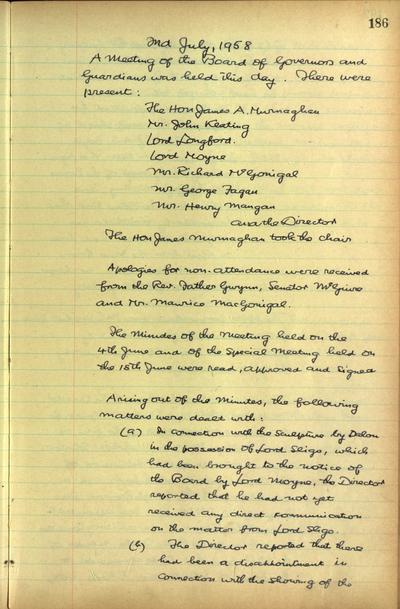 186
2nd July, 1958
A Meeting of the Board of Governors and
Guardians was held this day. There were
present:
The Hon James A. Murnaghan
Mr. John Keating
Lord Longford.
Lord Moyne
Mr. Richard McGonigal
Mr. George Fagan
Mr. Henry Mangan
and the Director
The Hon James Murnaghan took the chair
Apologies for non-attendance were received
from the Rev. Father Gwynn, Senator McGuire
and Mr. Maurice MacGonigal.
The Minutes of the Meeting held on the
4th June and of the Special Meeting held on
the 18th June were read, approved and signed
Arising out of the Minutes, the following
matters were dealt with:
(a) In connection with the Sculpture by
in the possession of Lord Sligo, which
had been brought to the notice of
the Board by Lord Moyne, the Director
reported that he had not yet
received any direct communication
on the matter from Lord Sligo.
(b) The Director reported that there
had been a disappointment in
connection with the showing of the